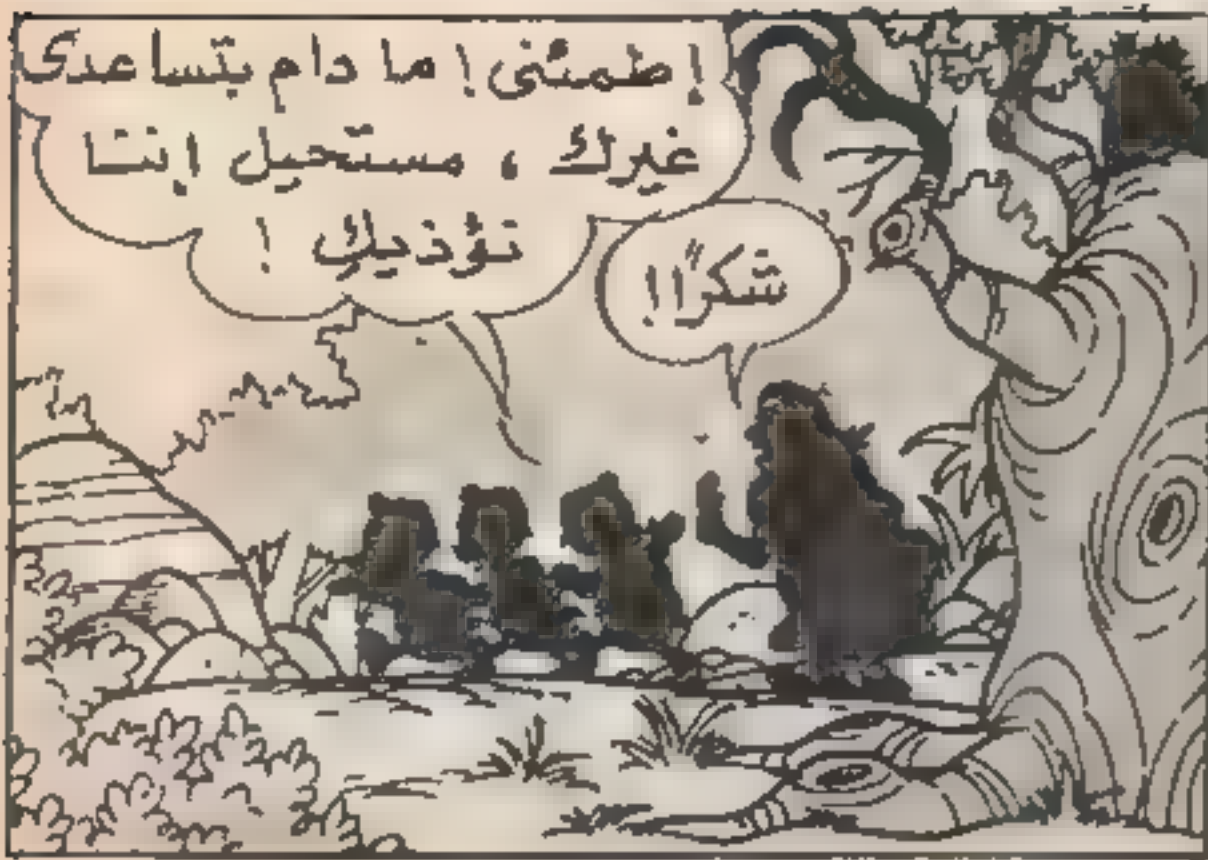 !طمئنى! ما دام بتساعدى
غيرك ، مستحيل إننا
نؤذيكِ !
شكرًا!